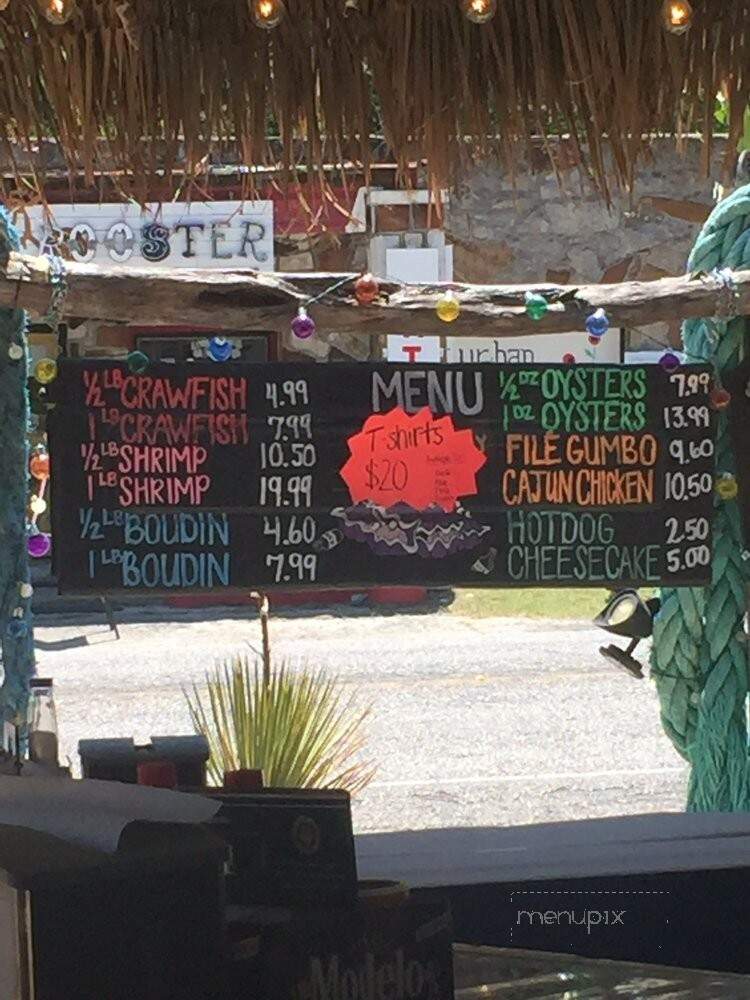 ROOSTER
urban
MENU
1/2 LB CRAWFISH 4.99
1 LB CRAWFISH 7.99
1/2 LB SHRIMP 10.50
1 LB SHRIMP 19.99
1/2 LB BOUDIN 4.60
1 LB BOUDIN 7.99
T-shirts
$20
1/2 DZ OYSTERS 7.99
1 DZ OYSTERS 13.99
FILE GUMBO 9.60
CAJUN CHICKEN 10.50
HOTDOG 2.50
CHEESECAKE 5.00
menupix
Modelo